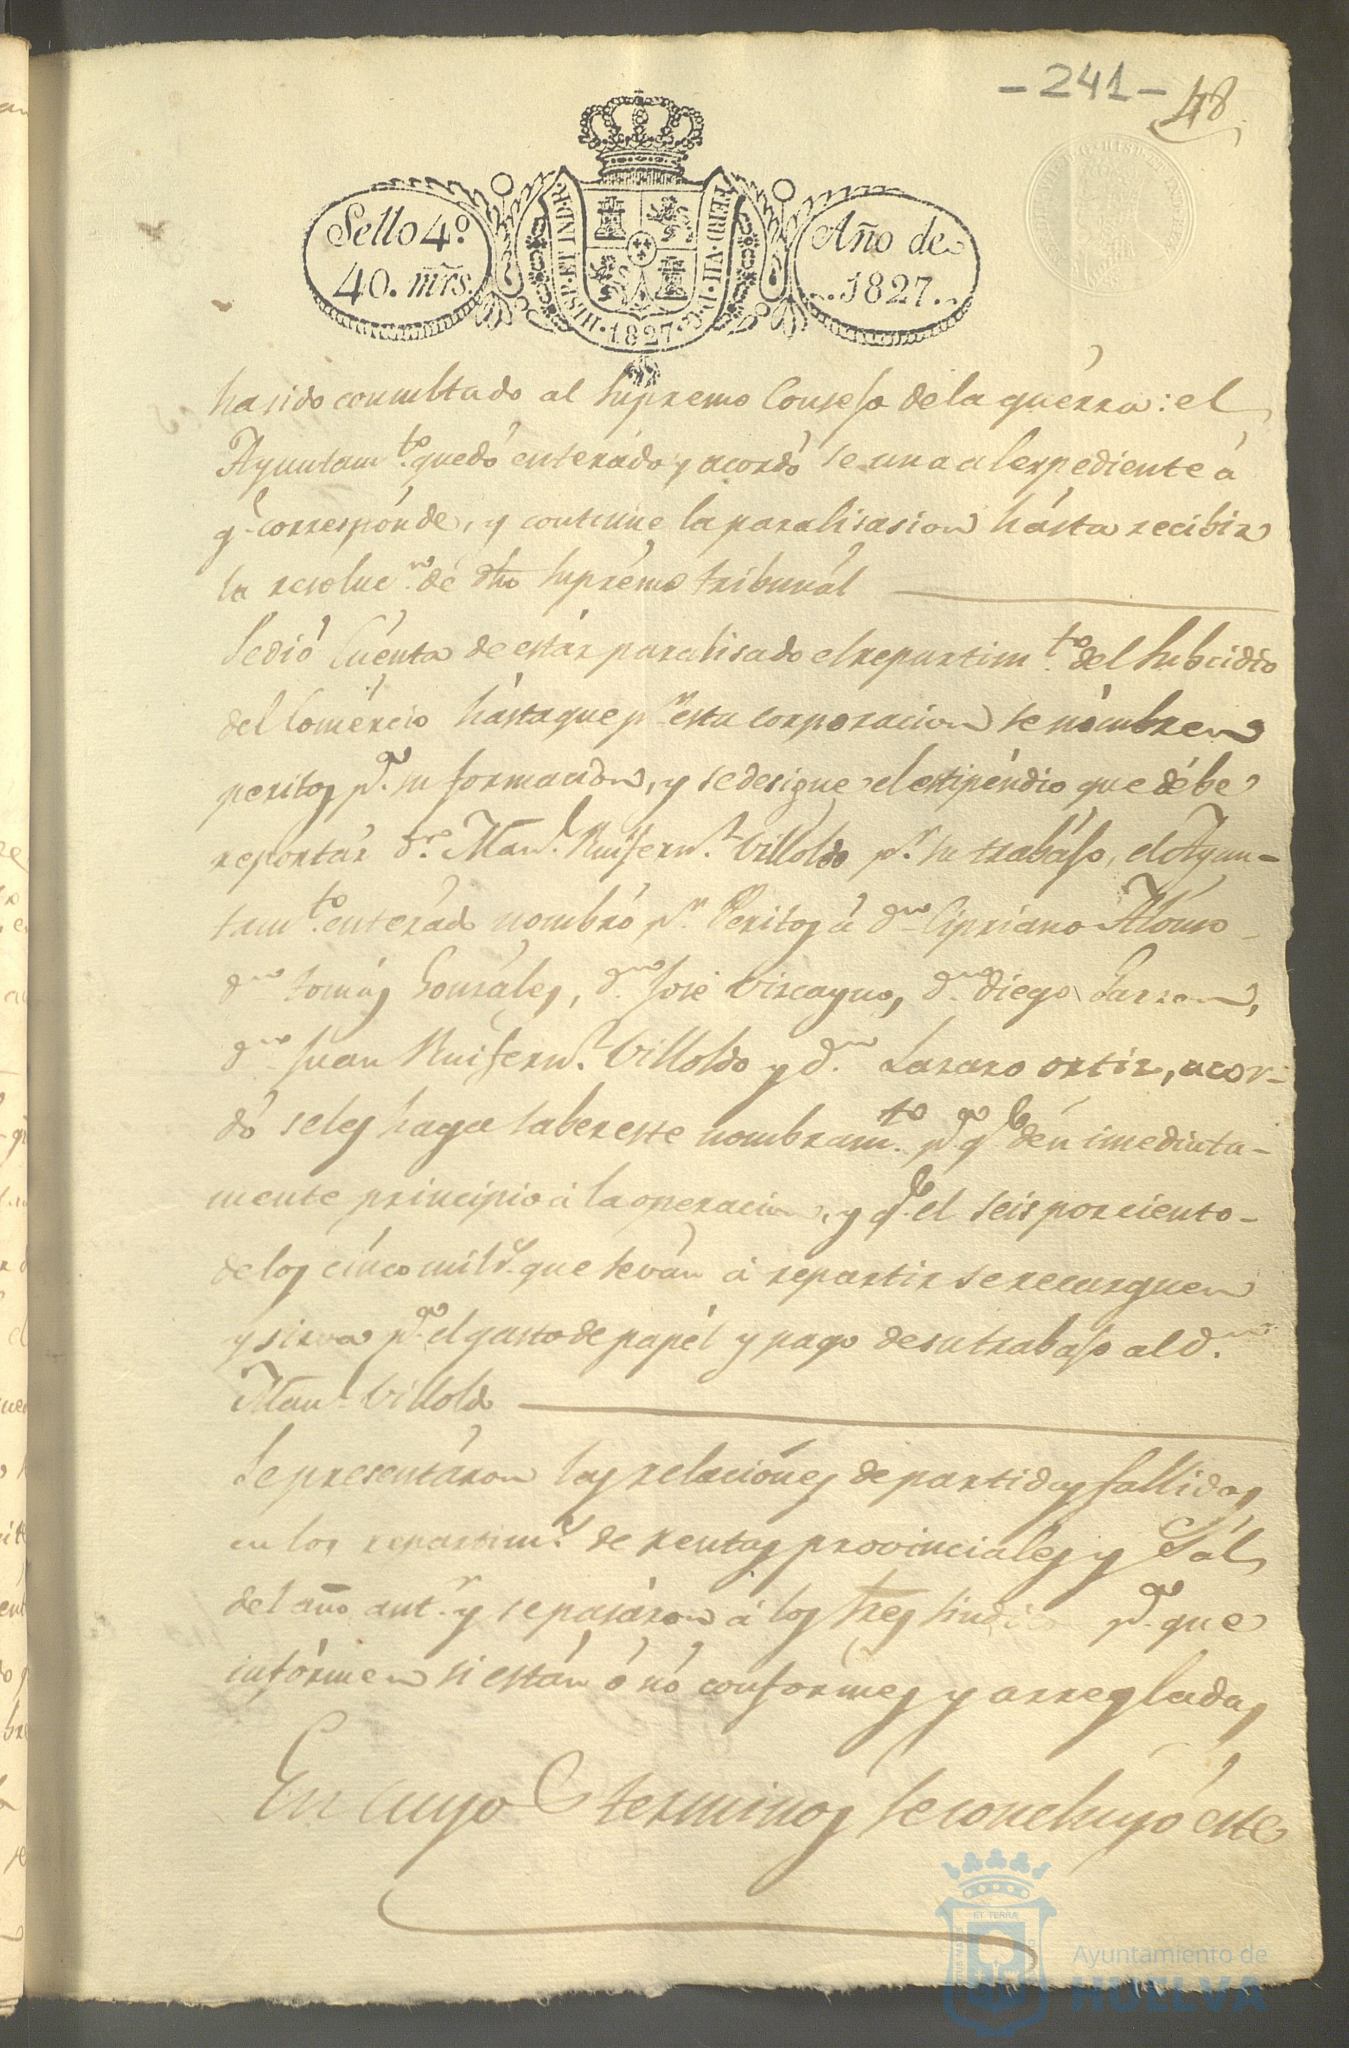 - 241 - 48
Sello 4º
40. mrs.
HISP. ET IND. R. FERD. VII. D. G. 1827
Año de
1827.
ha sido consultado al supremo Consejo de la guerra: el
Ayuntamto. quedó enterado y acordó se una al expediente á
qe. corresponde, y continue la paralisasion hásta recibir
la resolucn. de dho supremo tribunál
Se dió Cuenta de estár paralisado el repartimto. del subcidio
del Comércio hásta que pr. esta corporacion se nómbren
peritos pa. su formacion, y se desigue el estipéndio que débe
reportár Dn. Manl. Ruifernz. Villoldo pr. su trabájo, el Ayun-
tamto. enterado nombró pr. Peritos á dn. Cipriano Alónso
dn. tomás Gonsáles, dn. José Viscayno, dn. diego Garzon,
dn. Juan Ruifernz. Villoldo y dn. Lazaro ortiz, acor-
dó se les haga saber este nombramto. pa. qe. dén imediata-
mente principio á la operacion, y qe. el seis por ciento
de los cinco mil rs. que se ván á repartir se recarguen
y sirva pa. el gasto de papél y pago de su trabajo al dn.
Manl. Villoldo
Se presentáron las relaciónes de partidas fallidas
en los repartims. de rentas provinciales y Sál
del año antr. y se pasáron á los Sres sindicos pa. que
infórmen si están ó nó confórmes y arregladas
En cuyos terminos se concluyó éste
ET TERRÆ
Ayuntamiento de
HUELVA